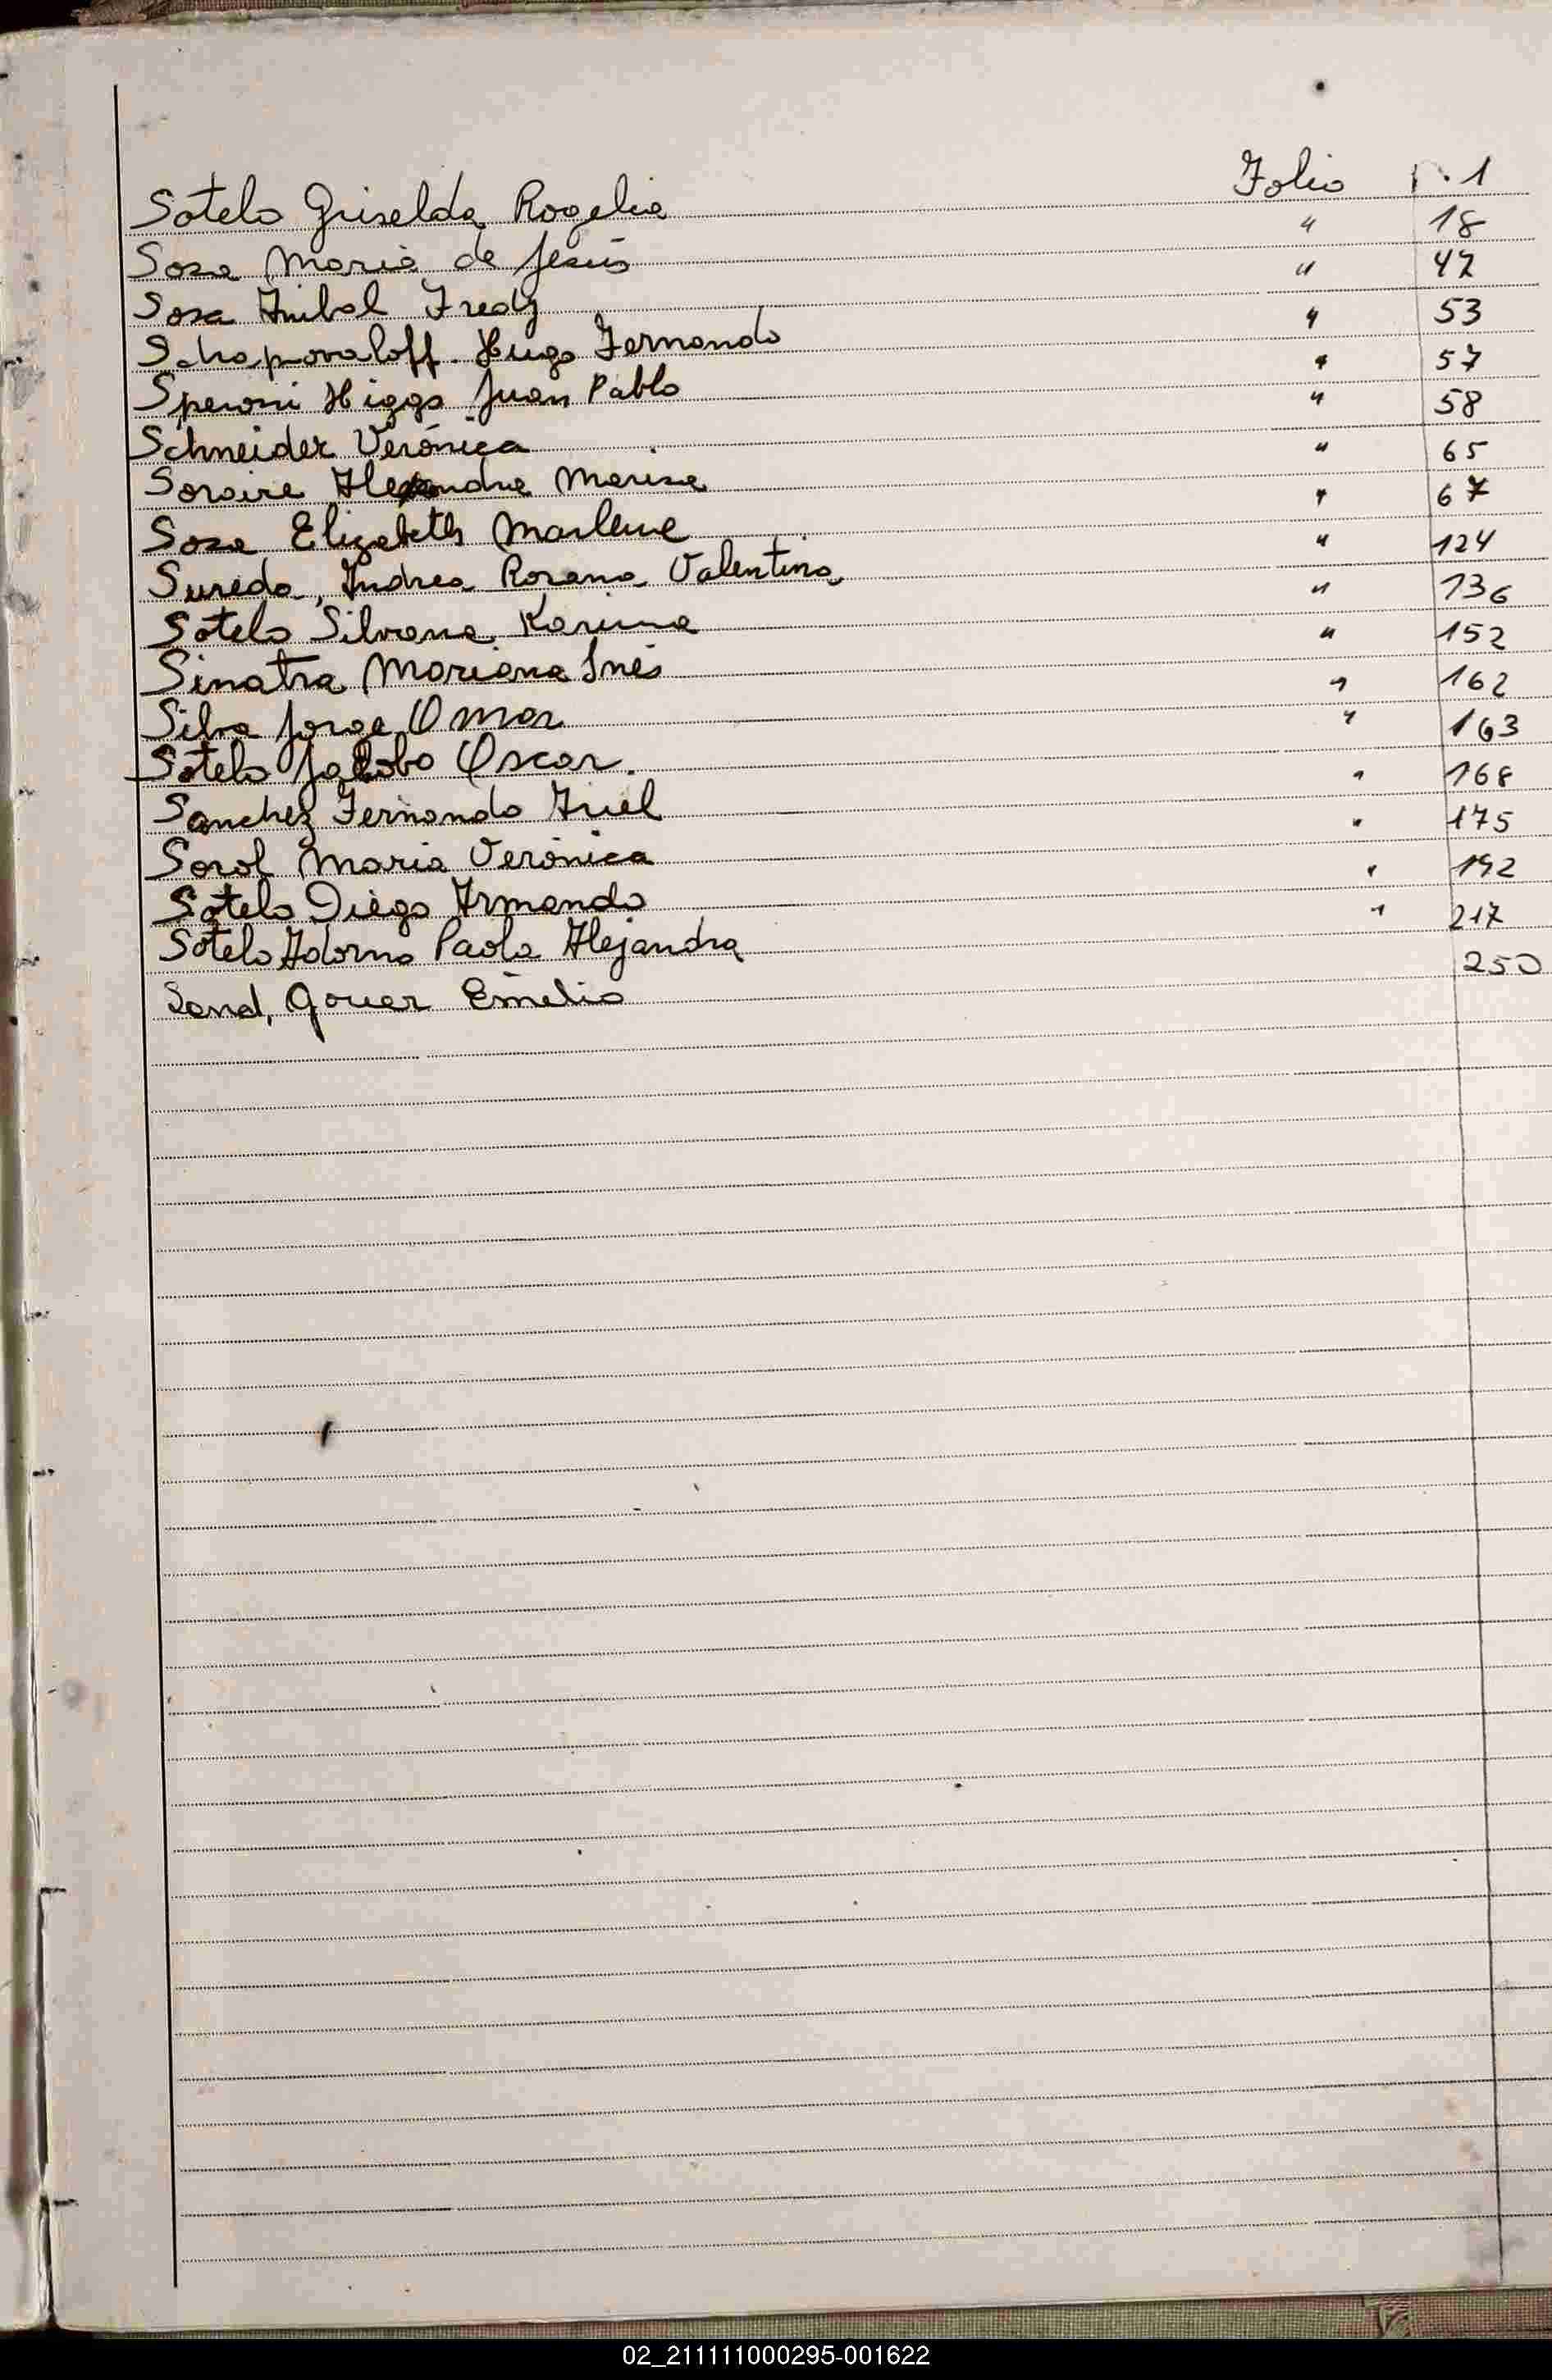 Sotelo Griselda Rogelia Folio n. 1
Sosa Maria de Jesús " 18
Sosa Anibal Fredy " 47
Schapovaloff Hugo Fernando " 53
Speroni Higgs Juan Pablo " 57
Schneider Verónica " 58
Soraire Alexandra Marisa " 65
Sosa Elizabeth Marlene " 67
Sureda, Andrea Rosana Valentina " 124
Sotelo Silvana Karina " 136
Sinatra Mariana Inés " 152
Silva Jorge Omar " 162
Sotelo Jacobo Oscar. " 163
Sanchez Fernando Ariel " 168
Sorol Maria Verónica " 175
Sotelo Diego Armando " 192
Sotelo Adorno Paola Alejandra " 217
Sand, Emilio 250
02_211111000295-001622